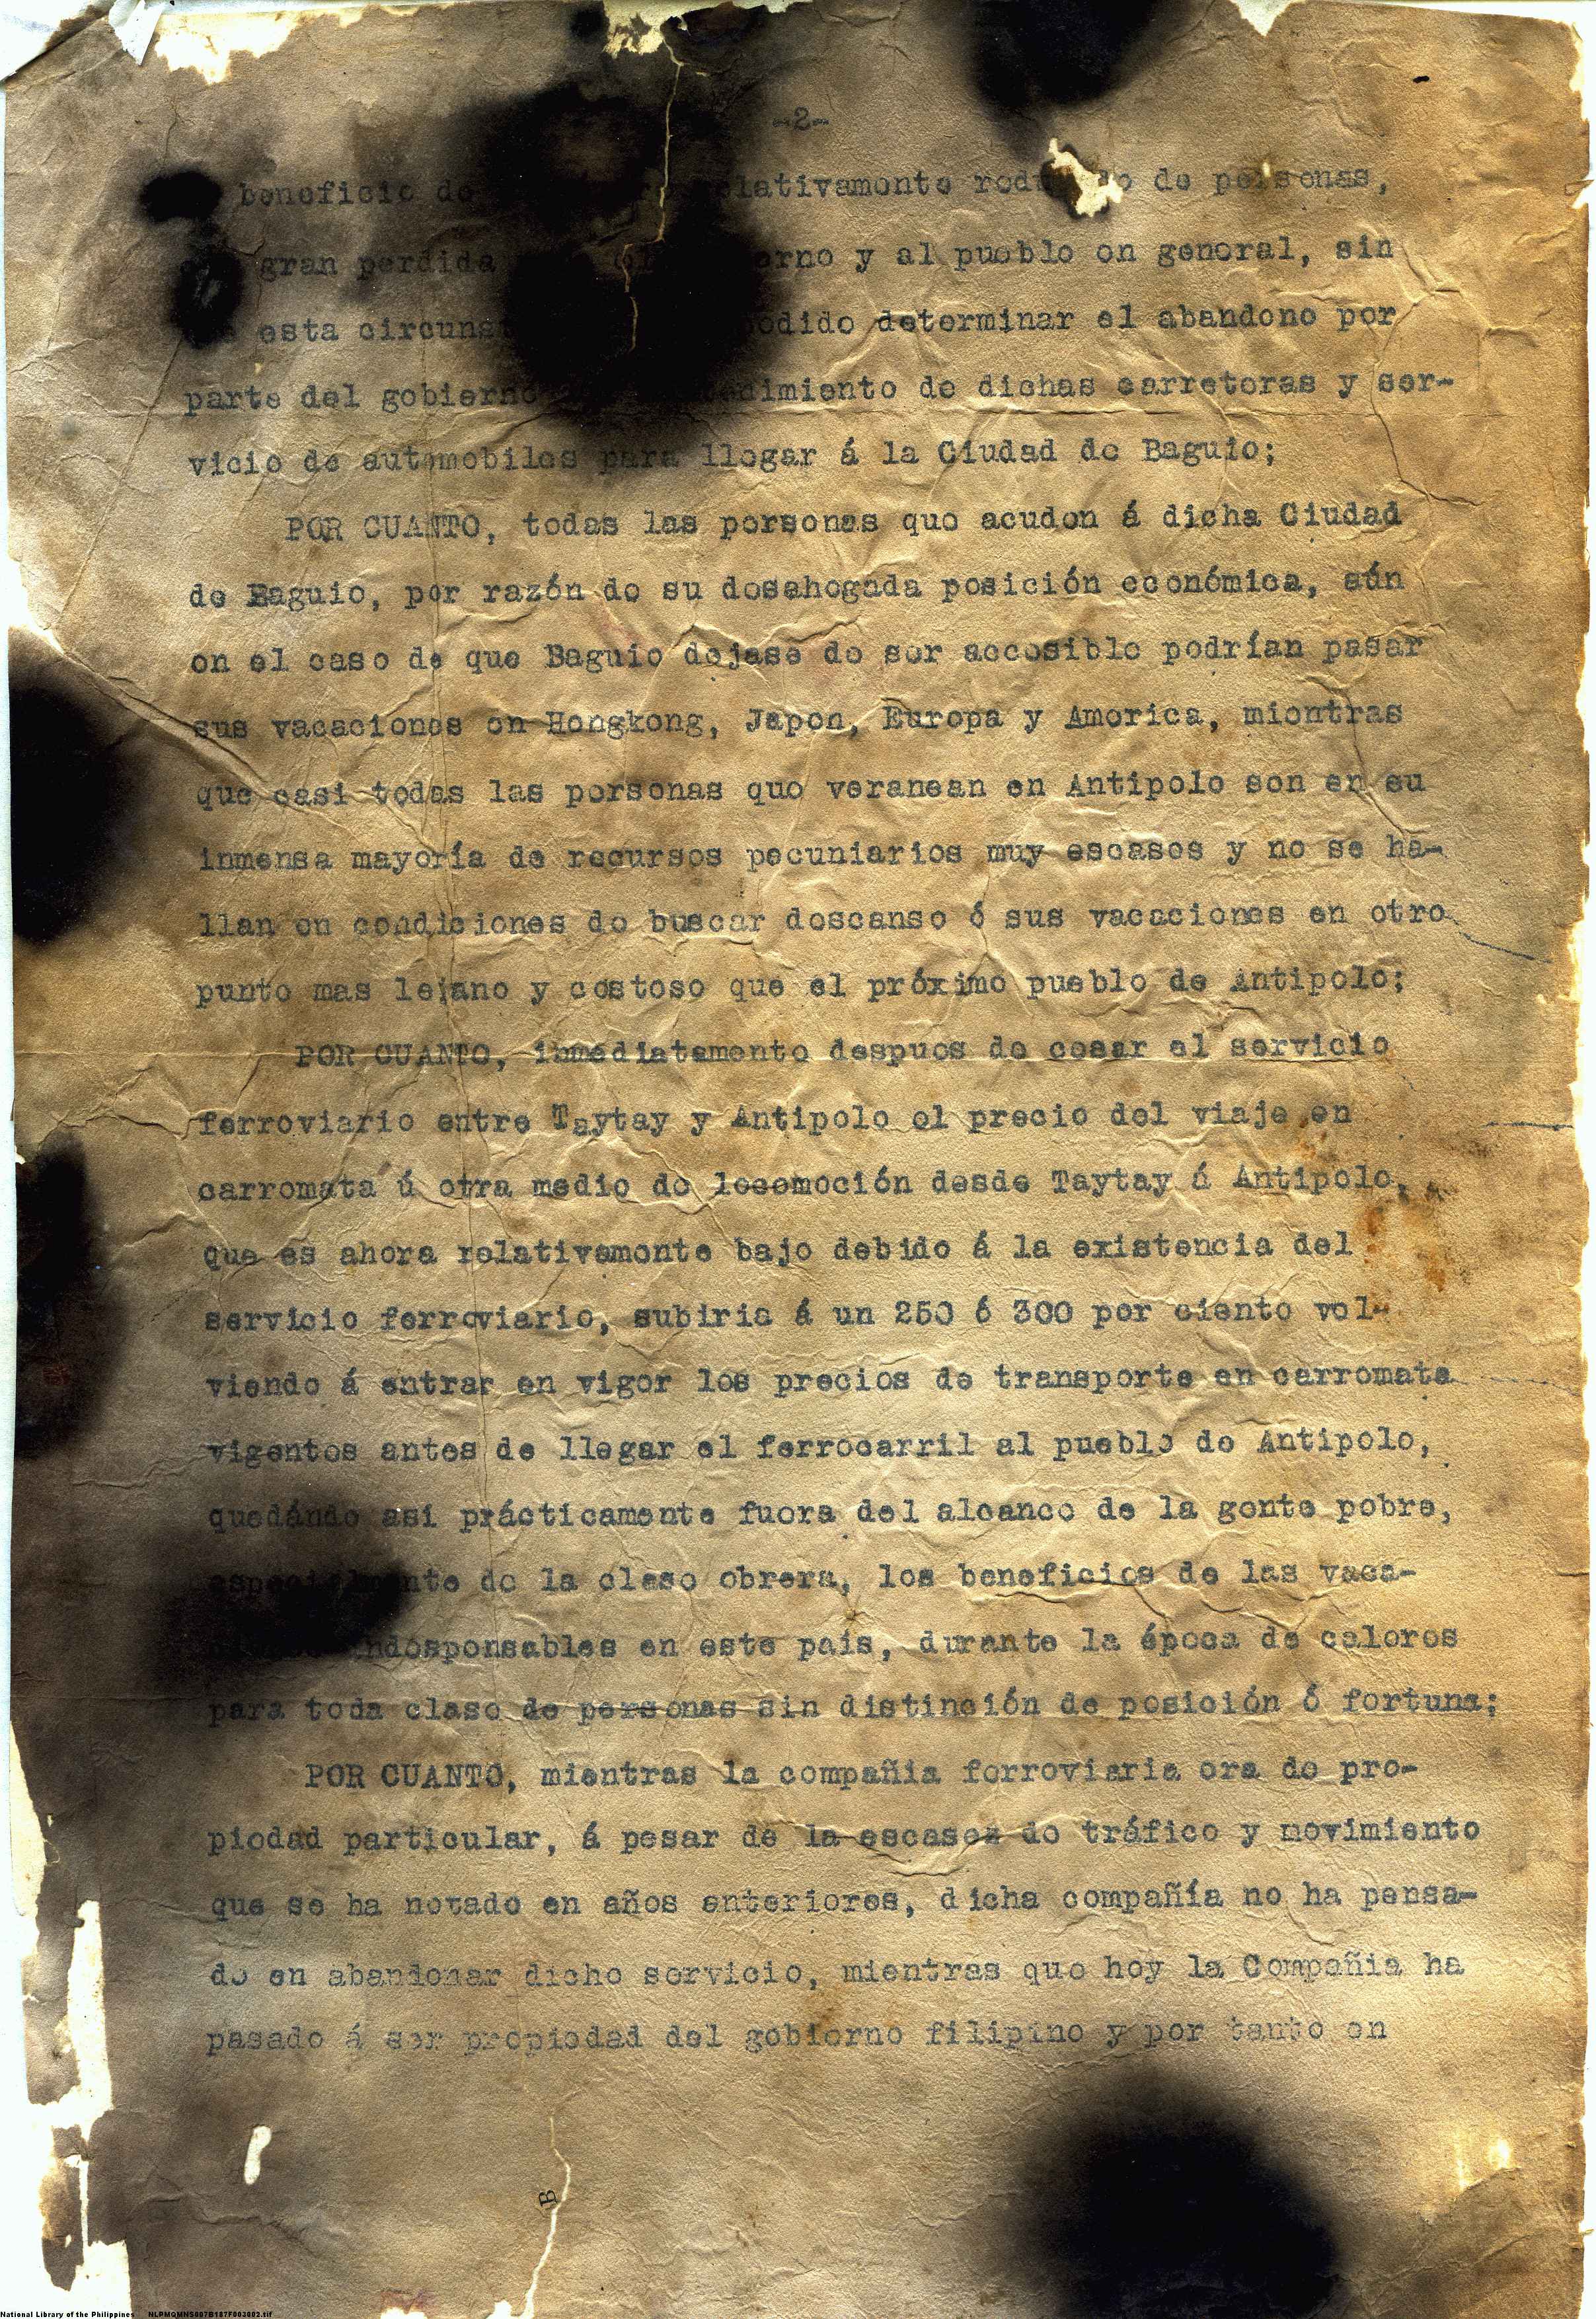 -2-
beneficio de relativamente reducido de personas,
gran perdida erno y al pueblo en general, sin
esta circuns podido determinar el abandono por
parte del gobierno dimiento de dichas carreteras y ser-
vicio de automobiles para llegar á la Ciudad de Baguio;
POR CUANTO, todas las personas que acuden á dicha Ciudad
de Baguio, por razón de su desahogada posición económica, aún
en el caso de que Baguio dejase de ser accesible podrían pasar
sus vacaciones en Hongkong, Japon, Europa y America, mientras
que casi todas las personas que veranean en Antipolo son en su
inmensa mayoría de recursos pecuniarios muy escasos y no se ha-
llan en condiciones de buscar descanso ó sus vacaciones en otro
punto mas lejano y costoso que el próximo pueblo de Antipolo;
POR CUANTO, inmediatamente despues de cesar el servicio
ferroviario entre Taytay y Antipolo el precio del viaje en
carromata ú otra medio de locomoción desde Taytay á Antipolo,
que es ahora relativamente bajo debido á la existencia del
servicio ferroviario, subiria á un 250 ó 300 por ciento vol-
viendo á entrar en vigor los precios de transporte en carromata
vigentes antes de llegar el ferrocarril al pueblo de Antipolo,
quedándo asi prácticamente fuera del alcance de la gente pobre,
especialmente de la clase obrera, los beneficios de las vaca-
indespensables en este pais, durante la época de calores
para toda clase de personas sin distinción de posición ó fortuna;
POR CUANTO, mientras la compañia ferroviaria era de pro-
piedad particular, á pesar de la escasez de tráfico y movimiento
que se ha notado en años anteriores, dicha compañía no ha pensa-
do en abandonar dicho servicio, mientras que hoy la Compañia ha
pasado á ser propiedad del gobierno filipino y por tanto en
B
National Library of the Philippines NLPMQMNS007B187F003002.tif